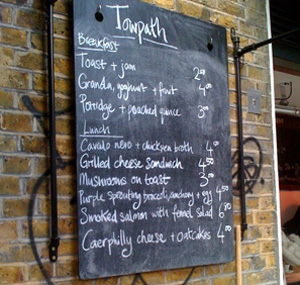 Towpath
Breakfast
Toast + jam 2.00
Granola, yoghurt + fruit 4.00
Porridge + poached quince 3.00
Lunch
Cavalo nero + chickpea broth 4.00
Grilled cheese sandwich 4.50
Mushrooms on toast 3.00
Purple sprouting broccoli, anchovy + egg 4.50
Smoked salmon with fennel salad 6.50
Caerphilly cheese + oatcakes 4.00